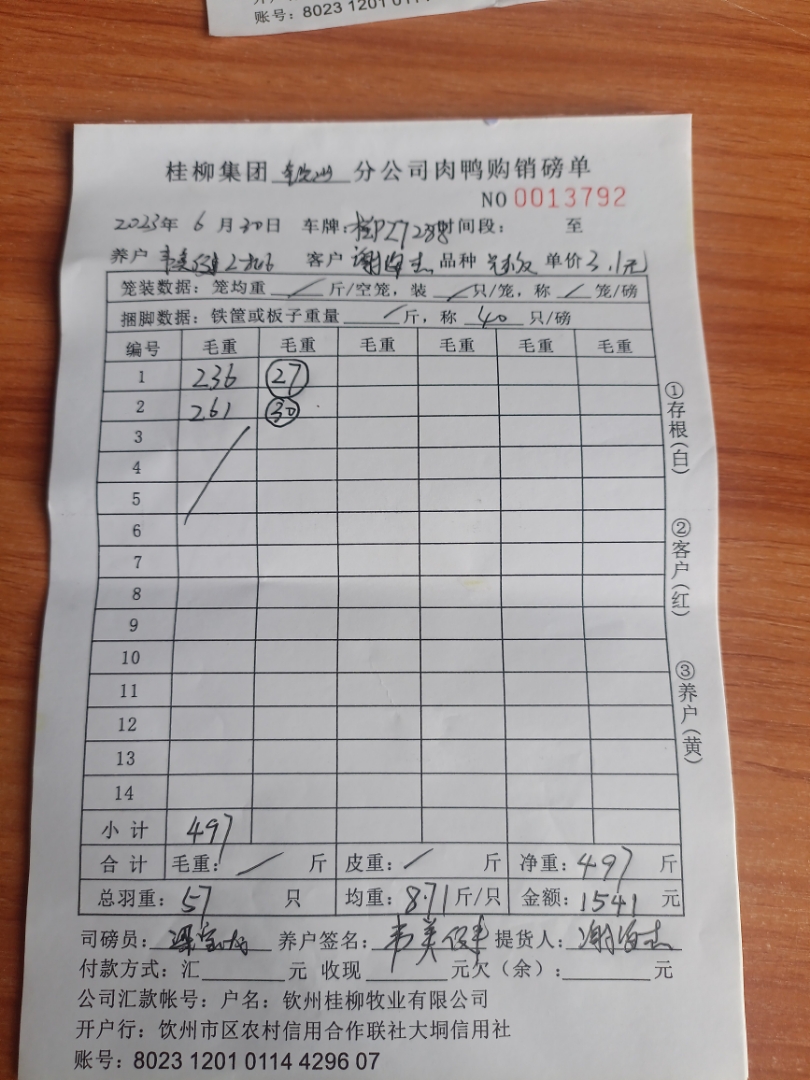 账号：8023 1201 0114
桂柳集团 钦州 分公司肉鸭购销磅单
NO 0013792
2023年 6 月 30日 车牌： 时间段： 至
养户 客户 品种 单价 3.1元
笼装数据：笼均重 / 斤/空笼，装 / 只/笼，称 / 笼/磅
捆脚数据：铁筐或板子重量 / 斤，称 40 只/磅
编号 毛重 毛重 毛重 毛重 毛重 毛重
1 236 27
2 261 30
3
4
5
6
7
8
9
10
11
12
13
14
小计 497
合计 毛重： / 斤 皮重： / 斤 净重：497 斤
总羽重：57 只 均重：8.71斤/只 金额：1541 元
司磅员： 养户签名：韦美 提货人：谢 杰
付款方式：汇 元 收现 元欠（余）： 元
公司汇款帐号：户名：钦州桂柳牧业有限公司
开户行：饮州市区农村信用合作联社大垌信用社
账号：8023 1201 0114 4296 07
①存根（白）
②客户（红）
③养户（黄）